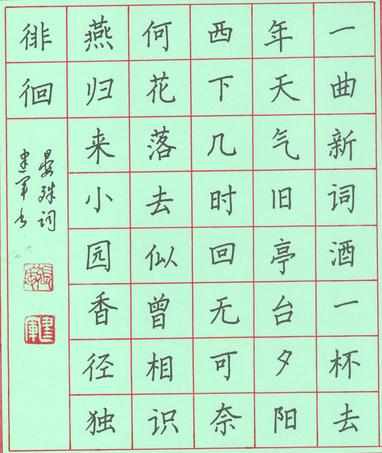 一曲新词酒一杯去
年天气旧亭台夕阳
西下几时回无可奈
何花落去似曾相识
燕归来小园香径独
徘徊
晏殊词
建军书